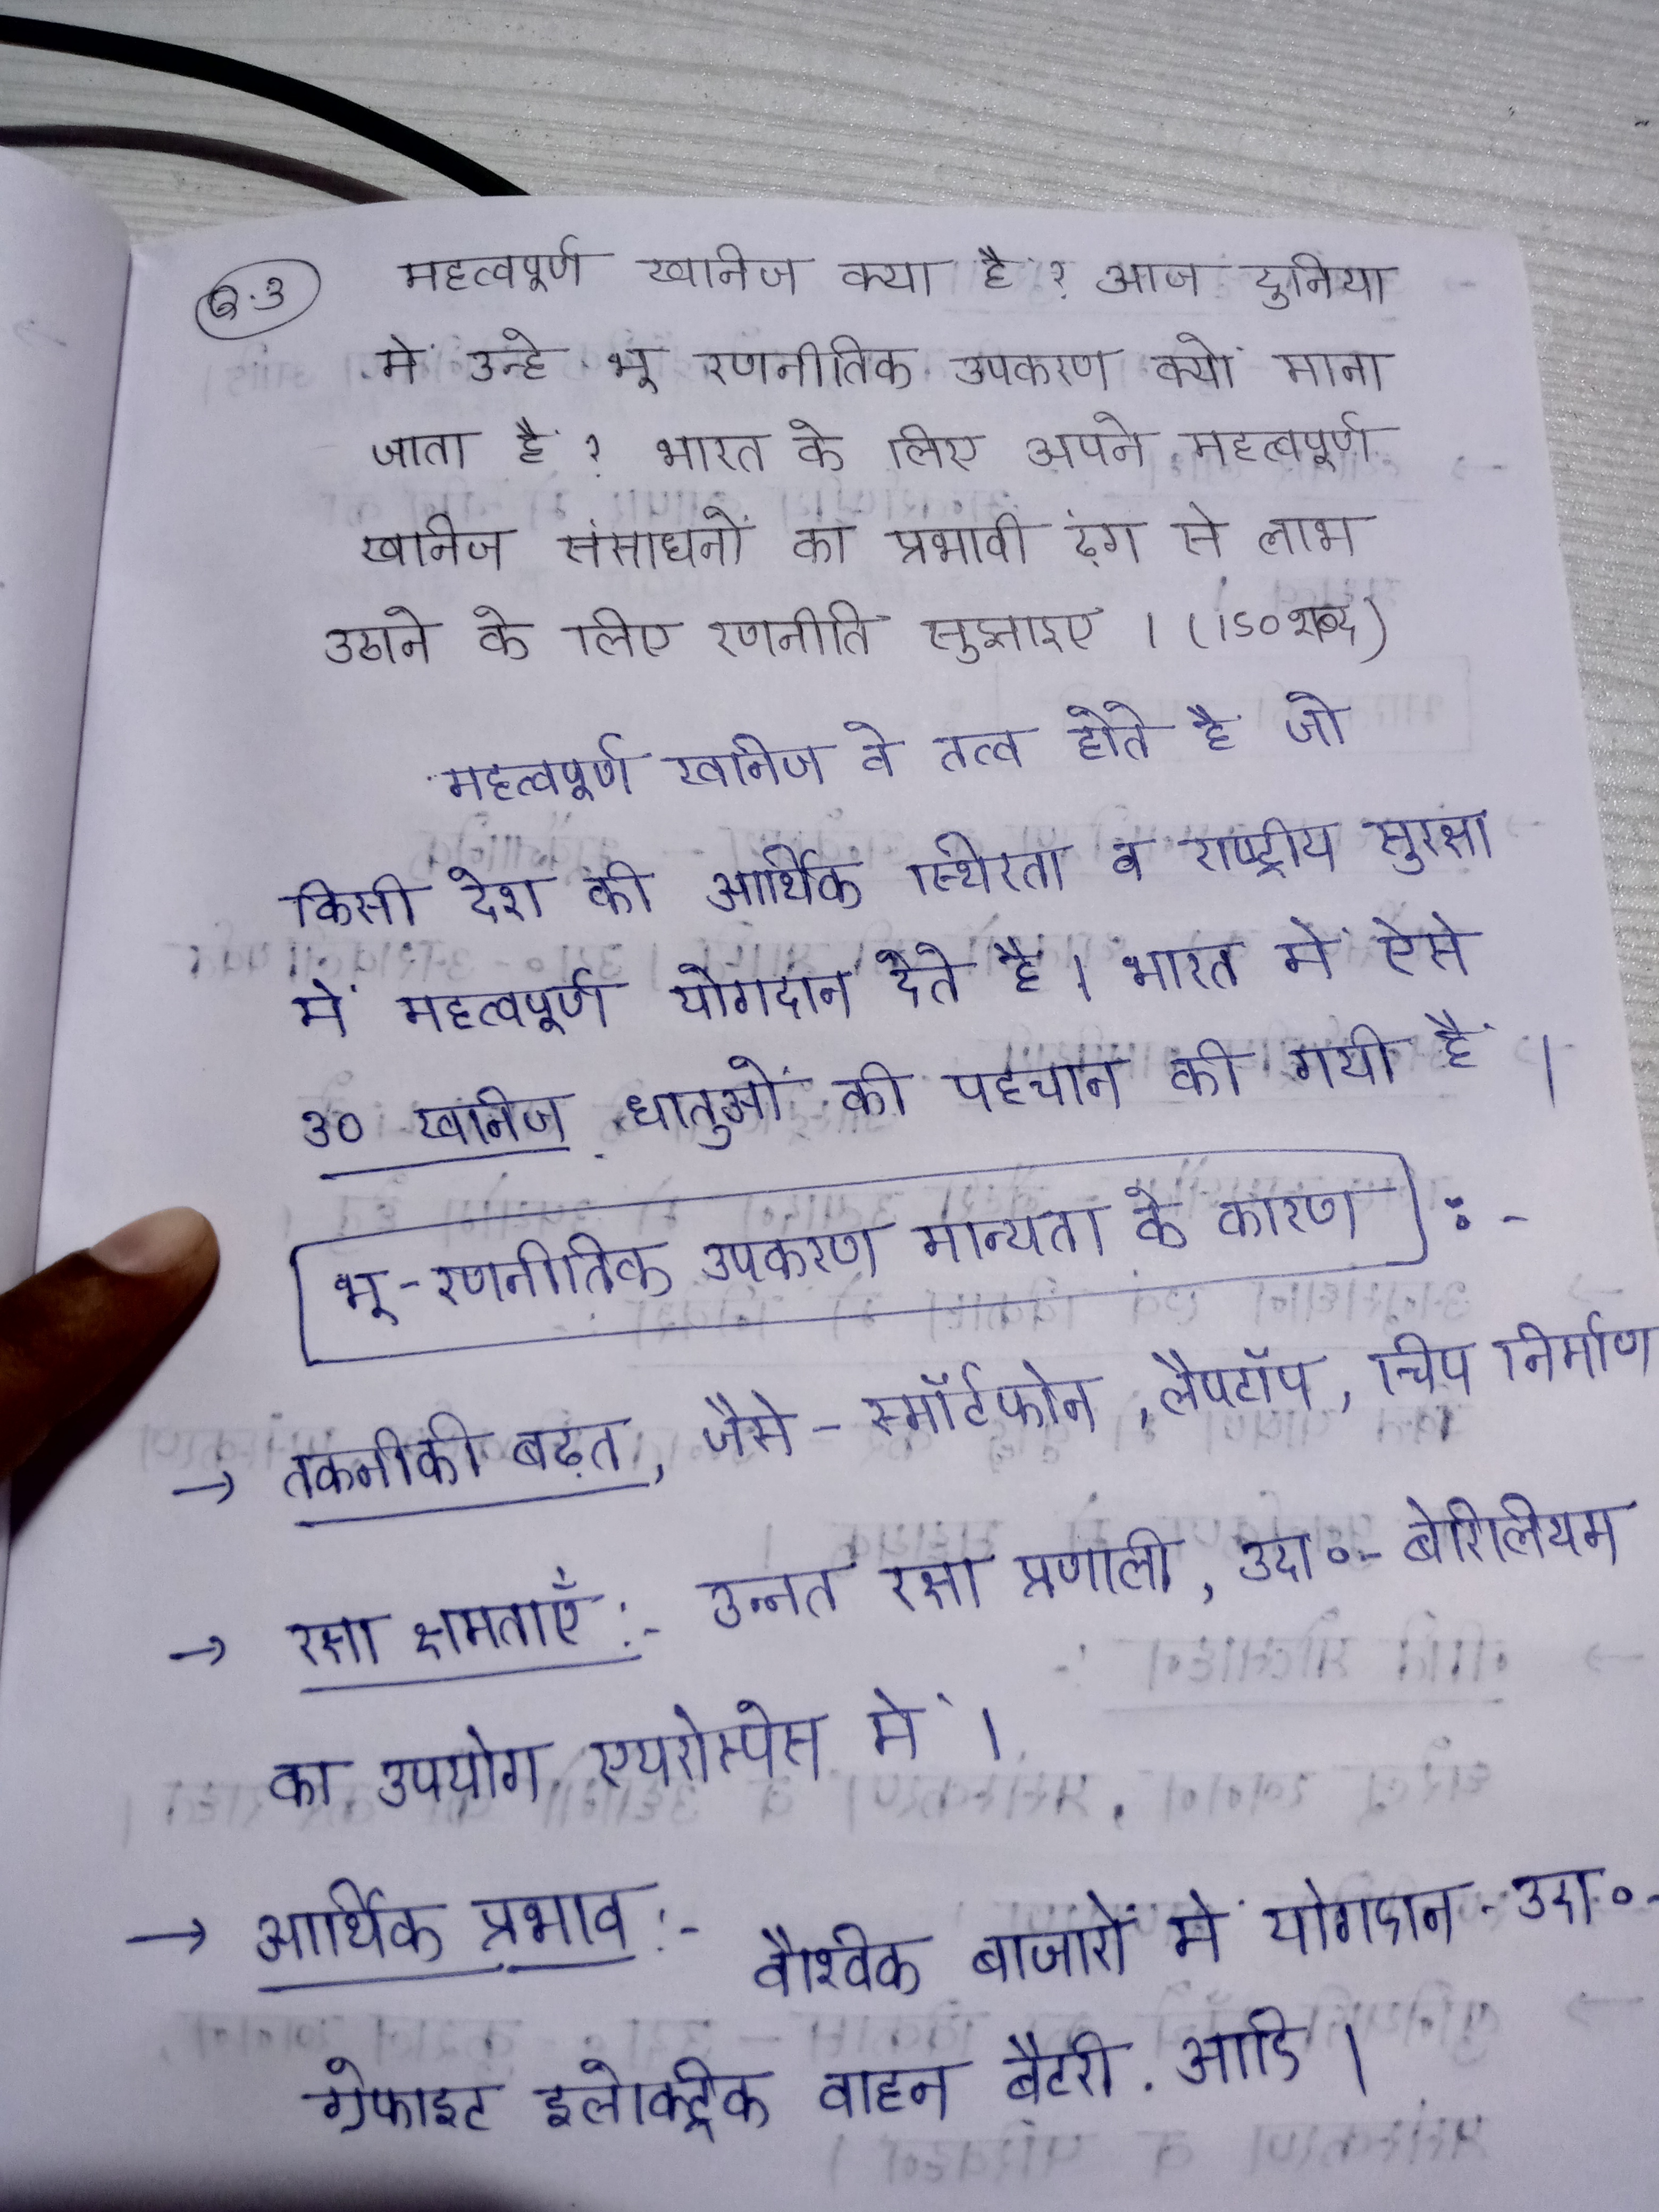 Q.3 महत्वपूर्ण खनिज क्या है ? आज दुनिया
में उन्हे भू रणनीतिक उपकरण क्यों माना
जाता है ? भारत के लिए अपने महत्वपूर्ण
खनिज संसाधनों का प्रभावी ढंग से लाभ
उठाने के लिए रणनीति सुझाइए । (150 शब्द)
महत्वपूर्ण खनिज वे तत्व होते है जो
किसी देश की आर्थिक स्थिरता व राष्ट्रीय सुरक्षा
में महत्वपूर्ण योगदान देते है । भारत में ऐसे
30 खनिज धातुओं की पहचान की गयी है ।
भू-रणनीतिक उपकरण मान्यता के कारण :-
→ तकनीकी बढ़त, जैसे - स्मॉर्टफोन, लैपटॉप, चिप निर्माण
→ रक्षा क्षमताएँ :- उन्नत रक्षा प्रणाली, उदा०- बेरीलियम
का उपयोग एयरोस्पेस में ।
→ आर्थिक प्रभाव :- वैश्विक बाजारों में योगदान - उदा०-
ग्रेफाइट इलेक्ट्रिक वाहन बैटरी . आदि ।